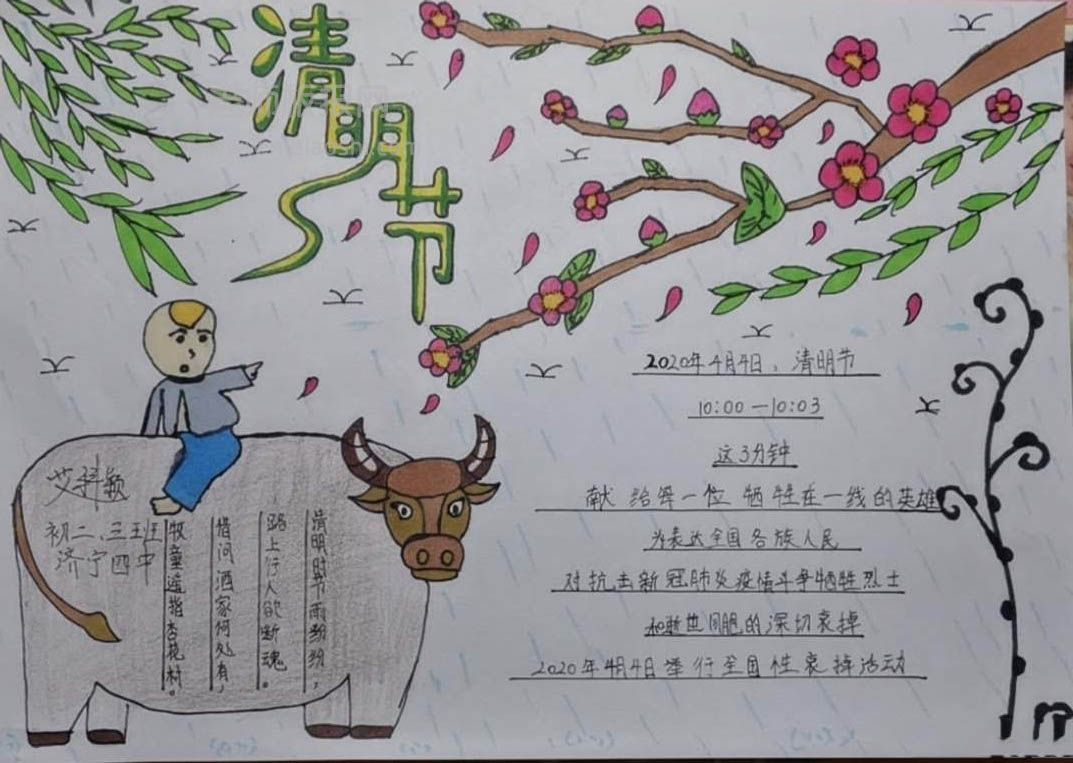 清明节
2020年4月4日,清明节
10:00—10:03
这3分钟
献给每一位牺牲在一线的英雄
为表达全国各族人民
对抗击新冠肺炎疫情斗争牺牲烈士
和逝世同胞的深切哀掉
2020年4月4日举行全国性哀掉活动
艾科颖
初二、三班
济宁四中
清明时节雨纷纷,
路上行人欲断魂。
借问酒家何处有,
牧童遥指杏花村。